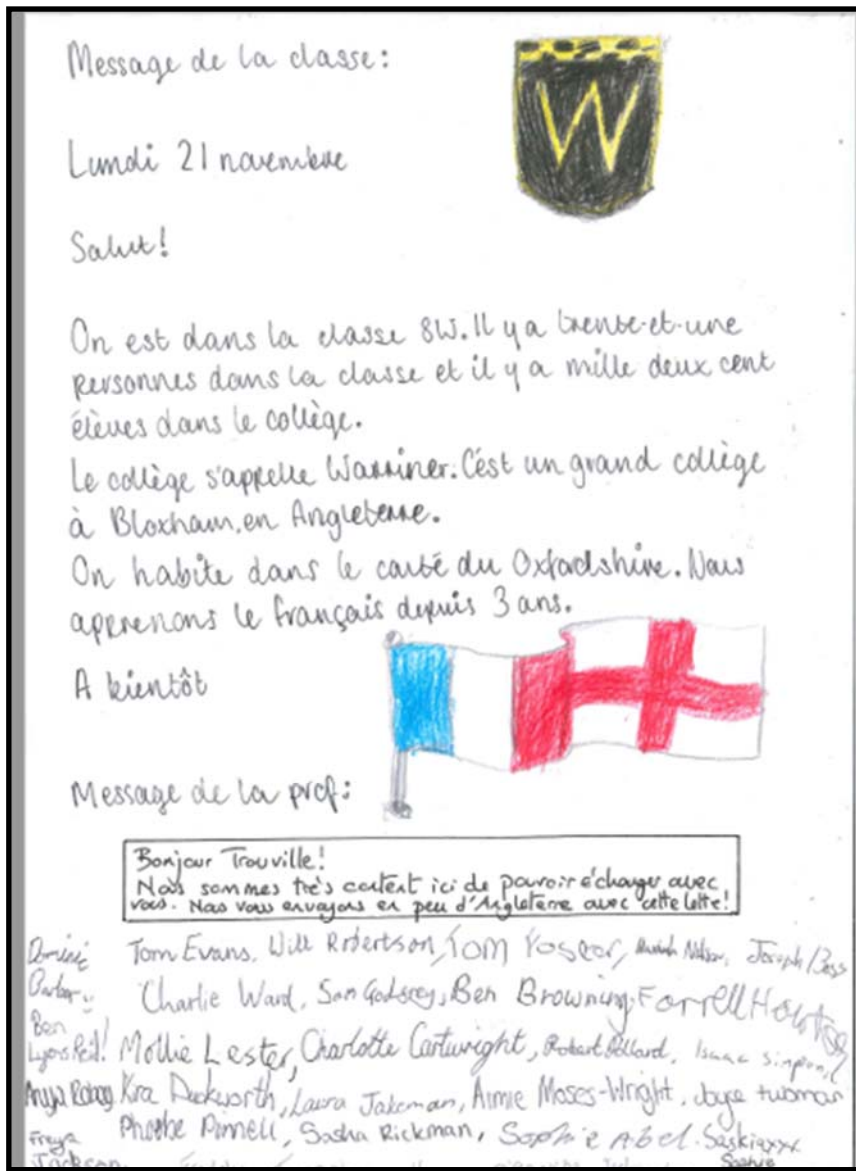 Message de la classe:
W
Lundi 21 novembre
Salut!
On est dans la classe 8W. Il y a trente-et-une
personnes dans la classe et il y a mille deux cent
élèves dans le collège.
Le collège s'appelle Warriner. C'est un grand collège
à Bloxham, en Angleterre.
On habite dans le comté du Oxfordshire. Nous
apprenons le français depuis 3 ans.
A bientôt
Message de la prof:
Bonjour Trouville!
Nous sommes très content ici de pouvoir échanger avec
vous. Nous vous envoyons un peu d'Angleterre avec cette lettre!
Tom Evans, Will Robertson, Tom Joseph
Charlie Ward, Sam Godsrey, Ben Browning, Farrell
Ben
Mollie Lester, Charlotte Cartwright, Robert Pollard, Isaac
Kira Duckworth, Laura Jakeman, Aimie Moses-Wright,
Phoebe Pinnell, Sasha Rickman, Sophie Abel. Saskiaxxx
Freya
Jackson Sophie